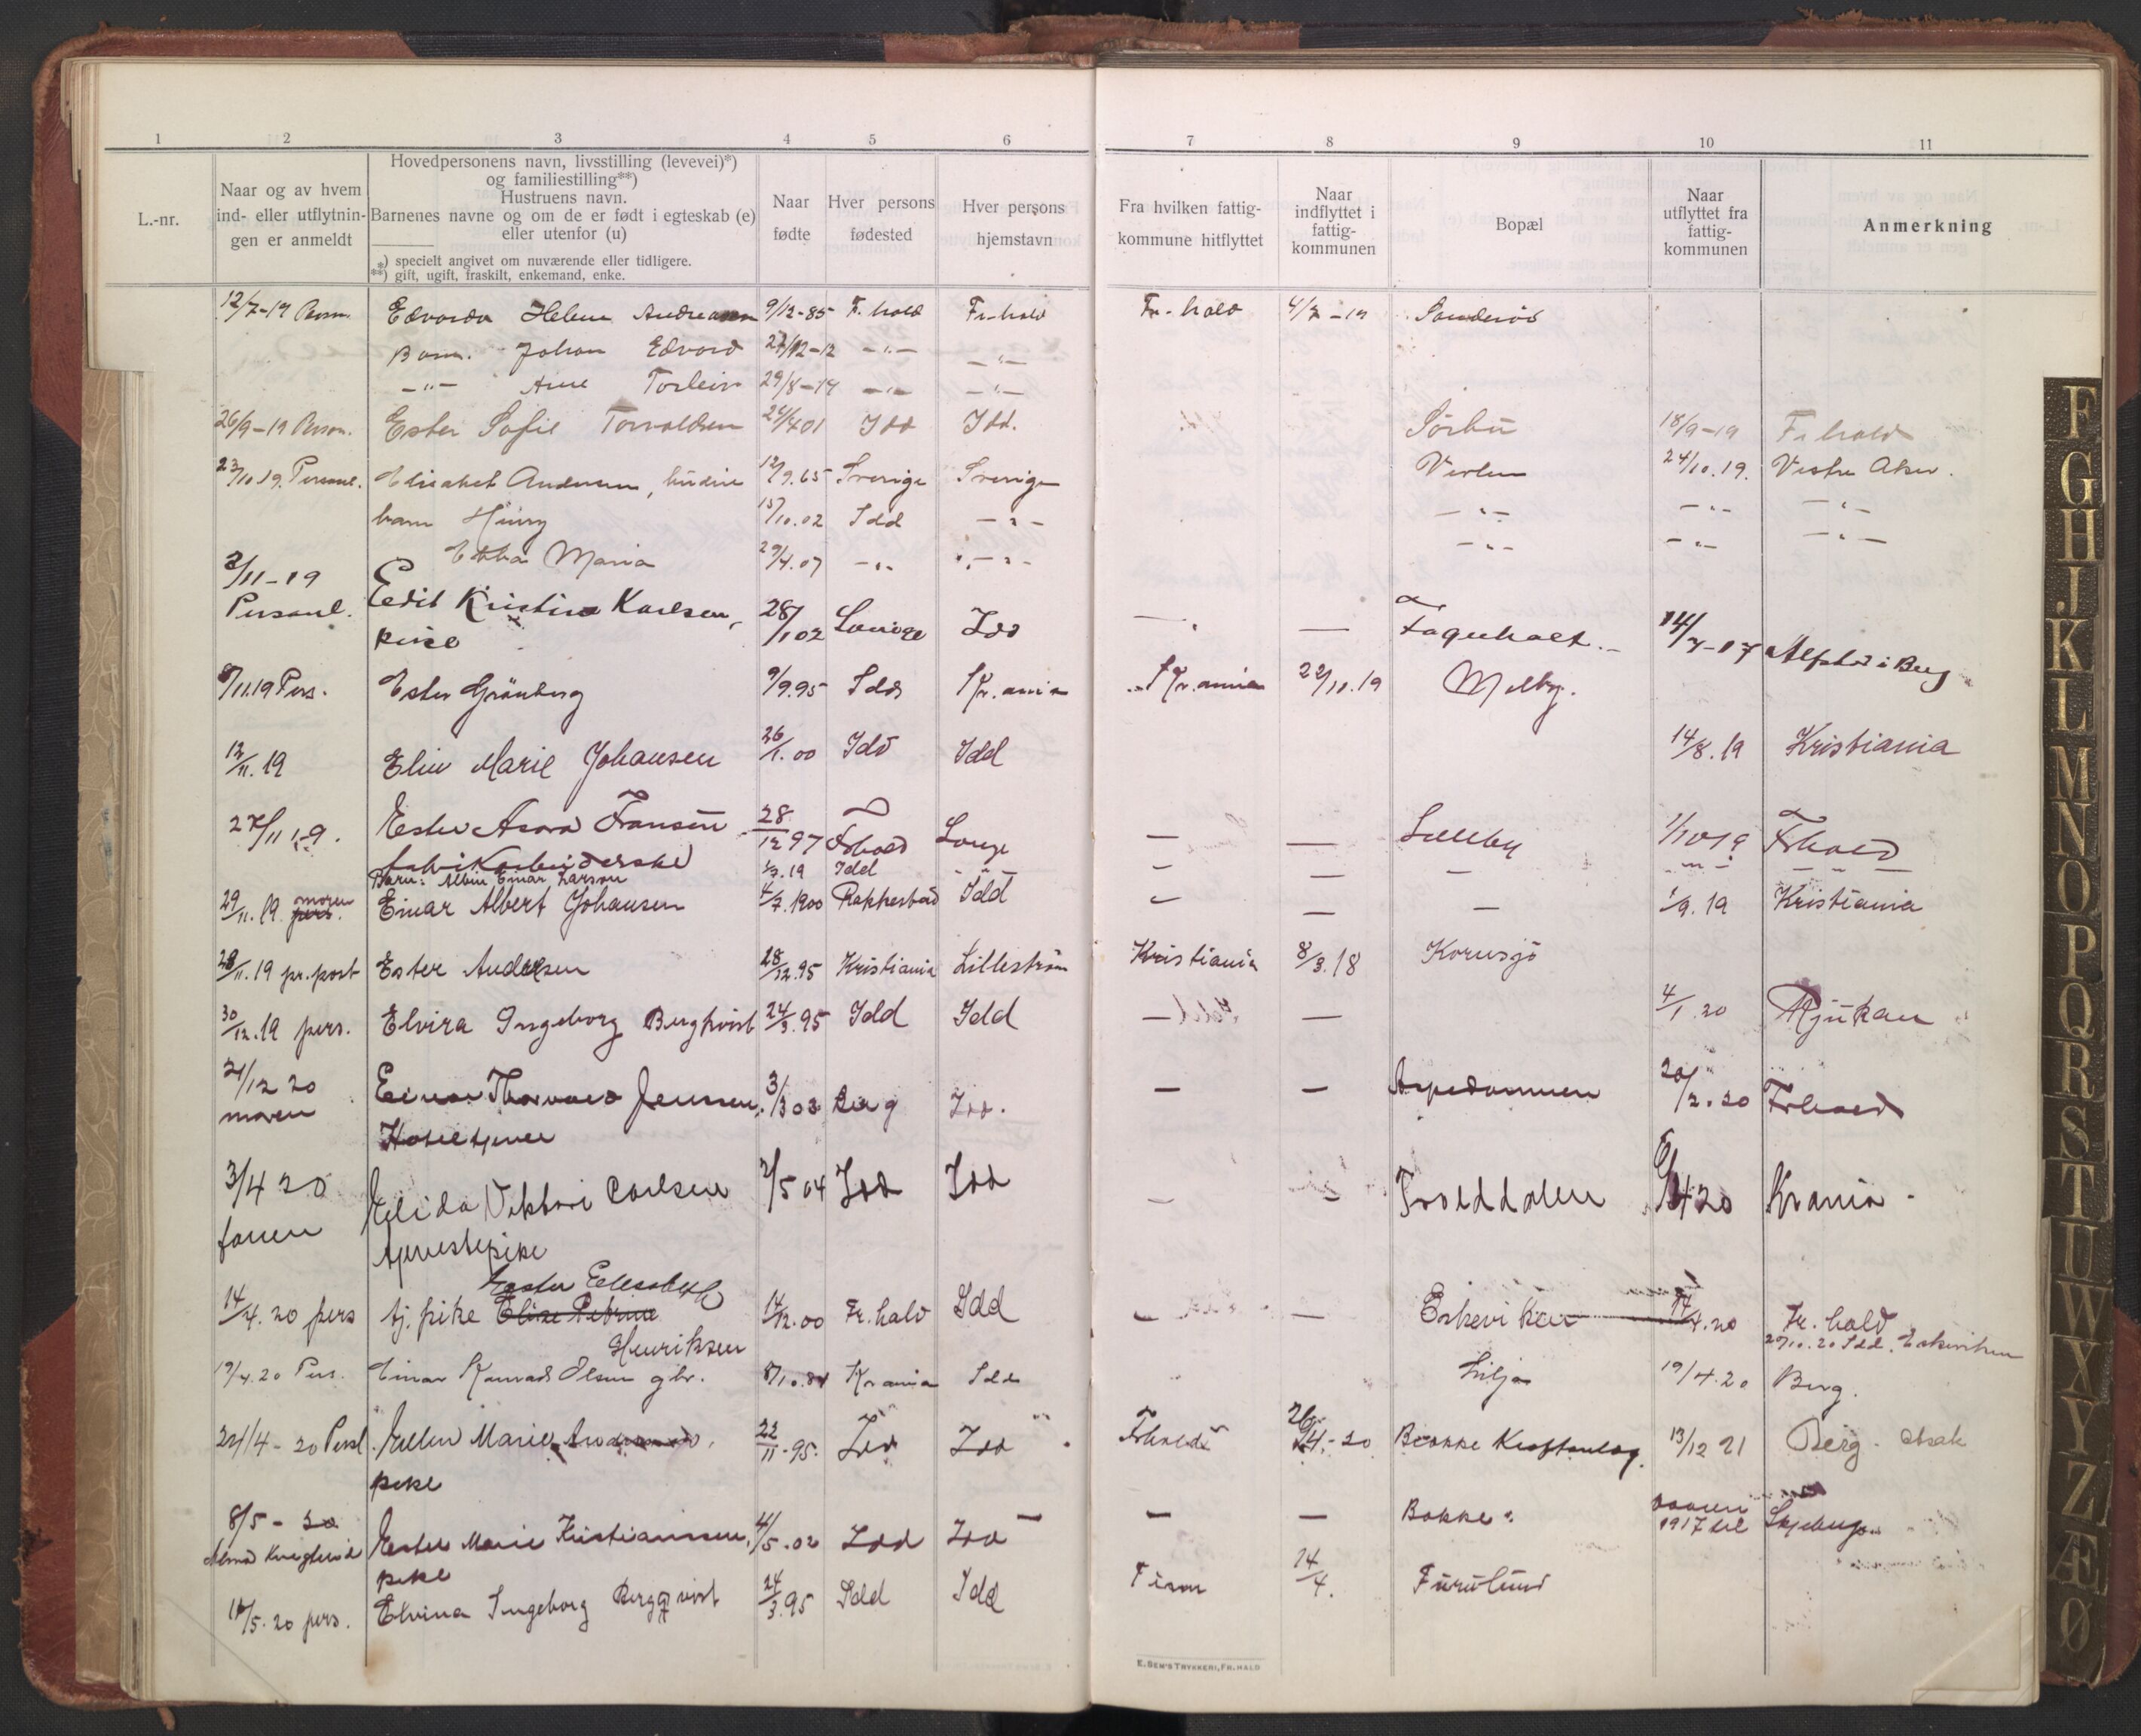 1 2 3 4 5 6 7 8 9 10 11
L.-nr.
Naar og av hvem
ind- eller utflytnin-
gen er anmeldt
Hovedpersonens navn, livsstilling (levevei)*)
og familiestilling**)
Hustruens navn.
Barnenes navne og om de er født i egteskab (e)
eller utenfor (u)
*) specielt angivet om nuværende eller tidligere.
**) gift, ugift, fraskilt, enkemand, enke.
Naar
fødte
Hver persons
fødested
Hver persons
hjemstavn
Fra hvilken fattig-
kommune hitflyttet
Naar
indflyttet i
fattig-
kommunen
Bopæl
Naar
utflyttet fra
fattig-
kommunen
Anmerkning
12/7-19 Edvarda Helene 9/12-85 F. hald Fr-hald Fr-hald 4/7-19
Barn. Johan Edvard 27/12-12 -"- -"-
-"- Arne Torleiv 29/8-14 -"- -"-
26/9-19 Person. Ester Sofie Torvaldsen Idd Idd. Sörbü 18/9-19 Frhald
23/10.19. Personl. Elisabet Andersen, 12/9.65 Sverige Sverige 24/10.19. Vestre Aker.
barn Henry 15/10.02 Idd -"- -"- -"- -"-
Ebba Maria 29/4.07 -"- -"- -"- -"- -"-
3/11-19
Personl. Eedit Kristine Karlsen, 28/1 02 Idd — — Fagerholt 14/7-17 i Berg
pike
8/11.19 Pers. Ester Grönberg 9/9.95 Idd Kr.ania Kr.ania 22/10.19 Melby.
12/11.19 Elin Marie Johansen 26/1.00 Idd Idd 14/8.19 Kristiania
27/11 19. Ester Fransen 28/12 97 Frhald — — Lilleby 1/10 19 Frhald
Barn: Albin Einar Larsen 1/3.19 Idd -"- — — — -"- -"-
29/11.19 moren pers. Einar Albert Johansen 4/7.1900 Rakkestad Idd — — — 1/9.19 Kristiania
28/11.19 pr. post Ester Andersen 28/12.95 Kristiania Lilleström Kristiania 8/3.18 Kornsjö
30/12.19 pers. Elvira Ingeborg Berghvist 24/3.95 Idd Idd — — 4/1.20 Rjukan
21/12 20 Einar Thorvald Jenssen, 3/3 03 Berg Idd. — — Aspedammen 20/2.20 Frhald
moren Hoteltjener
3/4 20 Elida Viktori Carlsen 2/5 04 Idd Idd — — Trolddalen 4 20 Krania
faren tjenestepike
Ester Elisabeth
14/4.20 pers tj. pike Elise Petrine 14/12.00 Fr. hald Idd — — Eskeviken 14/4.20 Fr. hald
Henriksen 27/10.20 Idd. Eskeviken
19/4.20 Pers. Einar Konrad Olsen gbr. 8/10.84 Krania Idd Lilja 19/4.20 Berg.
24/4-20 Persl. Ellen Marie 22/11-95. Idd Idd Frhald 26/4.-20 Brekke Kraftanlag. 13/12 21 Berg
pike
8/5-20 Ester Marie Kristianssen, 4/5.02 Idd Idd — — Bakke. vaaren
1917 til Skjeberg
pike
11/5.20 pers. Elvina Ingeborg Bergqvist 24/3.95 Idd Idd 14/4. Furulund
E. SEM'S TRYKKERI, FR.HALD
F
G
H
J
K
L
M
N
O
P
Q
R
S
T
U
W
X
Y
Z
Æ
Ø